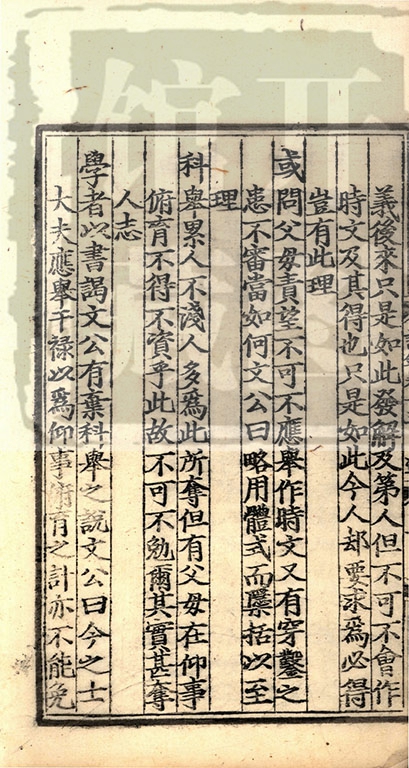 義後來只是如此發解及第人但不可不會作
時文及其得也只是如此今人却要求爲必得
豈有此理
或問父母責望不可不應舉作時文又有穿鑿之
患不審當如何文公曰略用體式而檃括以至
理
科舉累人不淺人多爲此所奪但有父母在仰事
俯育不得不資乎此故不可不勉爾其實甚奪
人志
學者以書謁文公有棄科舉之說文公曰今之士
大夫應舉干祿以爲仰事俯育之計亦不能免